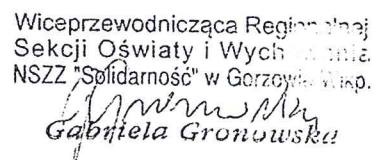 Wiceprzewodnicząca Regionalnej
Sekcji Oświaty i Wychowania
NSZZ "Solidarność" w Gorzowie Wlkp.
Gabriela Gronowska